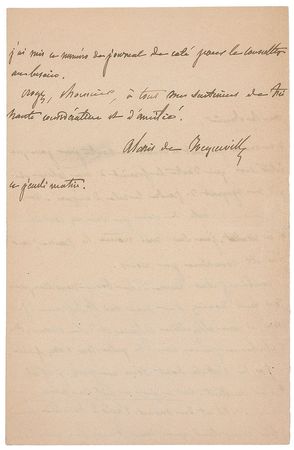 j'ai mis ce numéro du journal de coté pour le consulter
au besoin.
Croyez, Monsieur, à tous mes sentimens de très
haute considération et d'amitié.
Alexis de Tocqueville
ce jeudi matin.